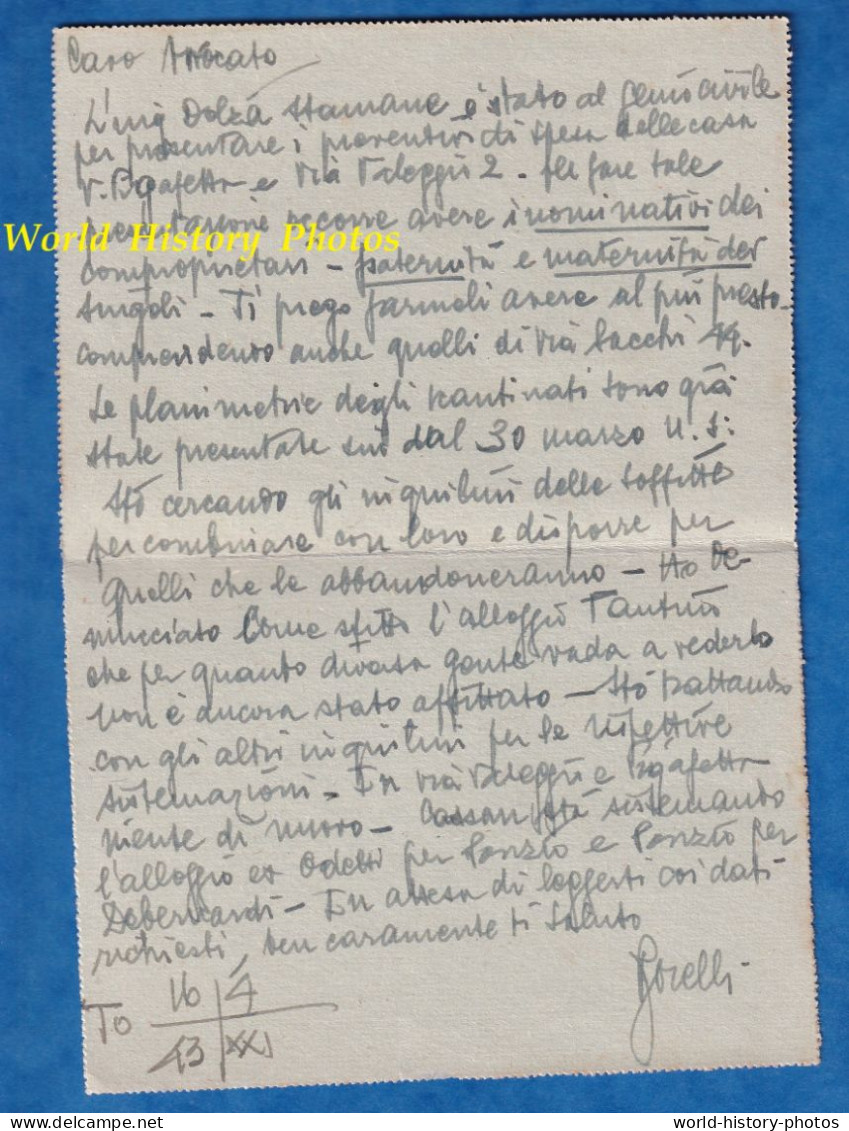 Caro Avvocato
L'ing Dolza stamane è stato al genio civile
per presentare i preventivi di spesa delle casa
V. Pigafetta e Via Valeggio 2 - per fare tale
occorre avere i nominativi dei
World History Photos
comproprietari - paternità e maternità dei
singoli - Ti prego farmeli avere al più presto -
comprendendo anche quelli di via Sacchi 44.
Le planimetrie degli scantinati sono già
state presentate sin dal 30 marzo u. s.
Stò cercando gli inquilini delle soffitte
per combinare con loro e disporre per
quelli che le abbandoneranno - Ho de-
nunciato come sfitto l'alloggio
che per quanto diversa gente vada a vederlo
non è ancora stato affittato - Stò trattando
con gli altri inquilini per le rispettive
sistemazioni - In via Valeggio e Pigafetta
niente di nuovo - stà sistemando
l'alloggio ex Odetti per Ponzio e Ponzio per
Debernardi - In attesa di leggerti coi dati
richiesti, ben caramente ti saluto
To 16 4
43 XXI
world-history-photos